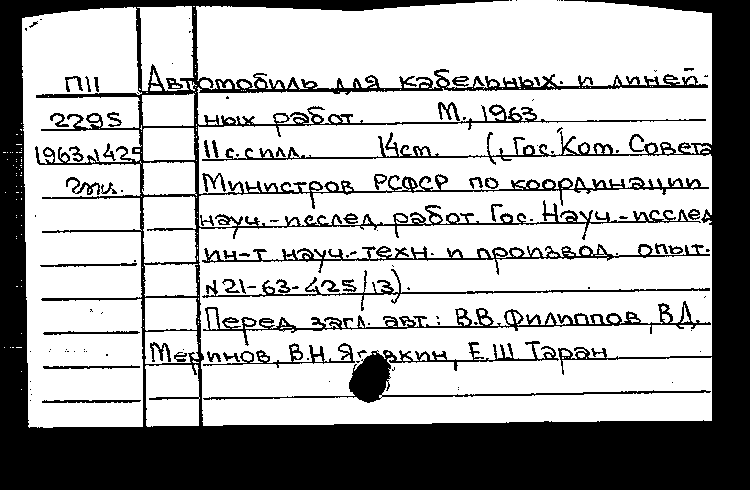 П11 Автомобиль для кабельных и линей-
2295 ных работ. М., 1963.
1963 N425 11 с. с илл. 14 см. (Гос. Ком. Совета
2 эк. Министров РСФСР по координации
науч.-исслед. работ. Гос. Науч.-исслед
ин-т науч.-техн. и производ. опыт.
N21-63-425/13).
Перед загл. авт.: В.В. Филиппов, В.Д.
Меринов, В.Н. Е.Ш Таран